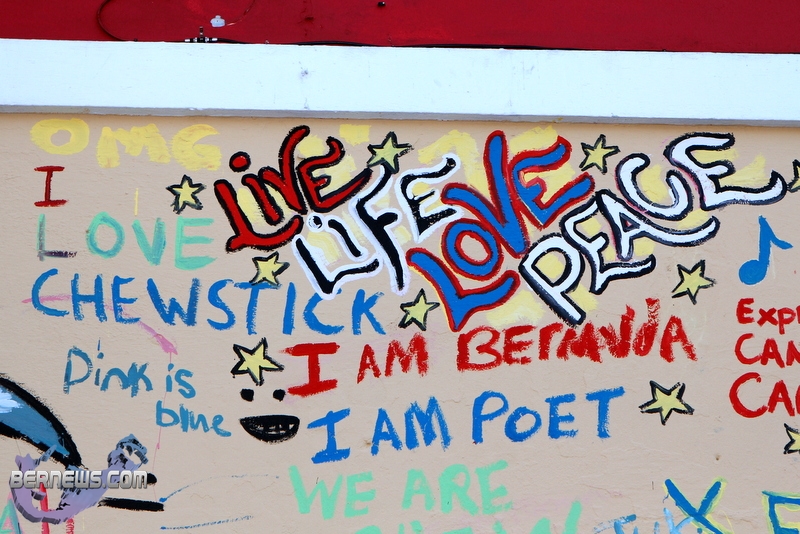 OMG
I
LOVE
CHEWSTICK
LIVE
LIFE
LOVE
PEACE
I AM BERMUDA
Pink is
blue
I AM POET
WE ARE
CAN
BERNEWS.COM